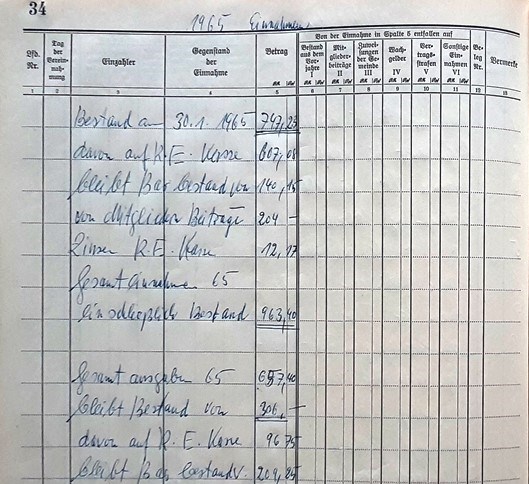 34
1965 Einnahmen
Lfd. Nr.
Tag der Vereinnahmung
Einzahler
Gegenstand der Einnahme
Betrag
Von der Einnahme in Spalte 5 entfallen auf
Bestand aus dem Vorjahre I
Mitgliederbeiträge II
Zuweisungen der Gemeinde III
Wachgelder IV
Vertragsstrafen V
Sonstige Einnahmen VI
Beleg Nr.
Bemerkungen
1 2 3 4 5 6 7 8 9 10 11 12 13
Bestand am 30.1.1965 747,23
davon auf R.E. Kasse 607,08
bleibt Bar bestand von 140,15
von Mitglieder Beiträge 204 —
Zinsen R.E. Kasse 12,17
Gesamt einnahmen 65
einschließlich Bestand 963,40
Gesamt ausgaben 65 657,40
bleibt Bestand von 306,—
davon auf R.E. Kasse 96 75
bleibt Bar bestand v. 209,25